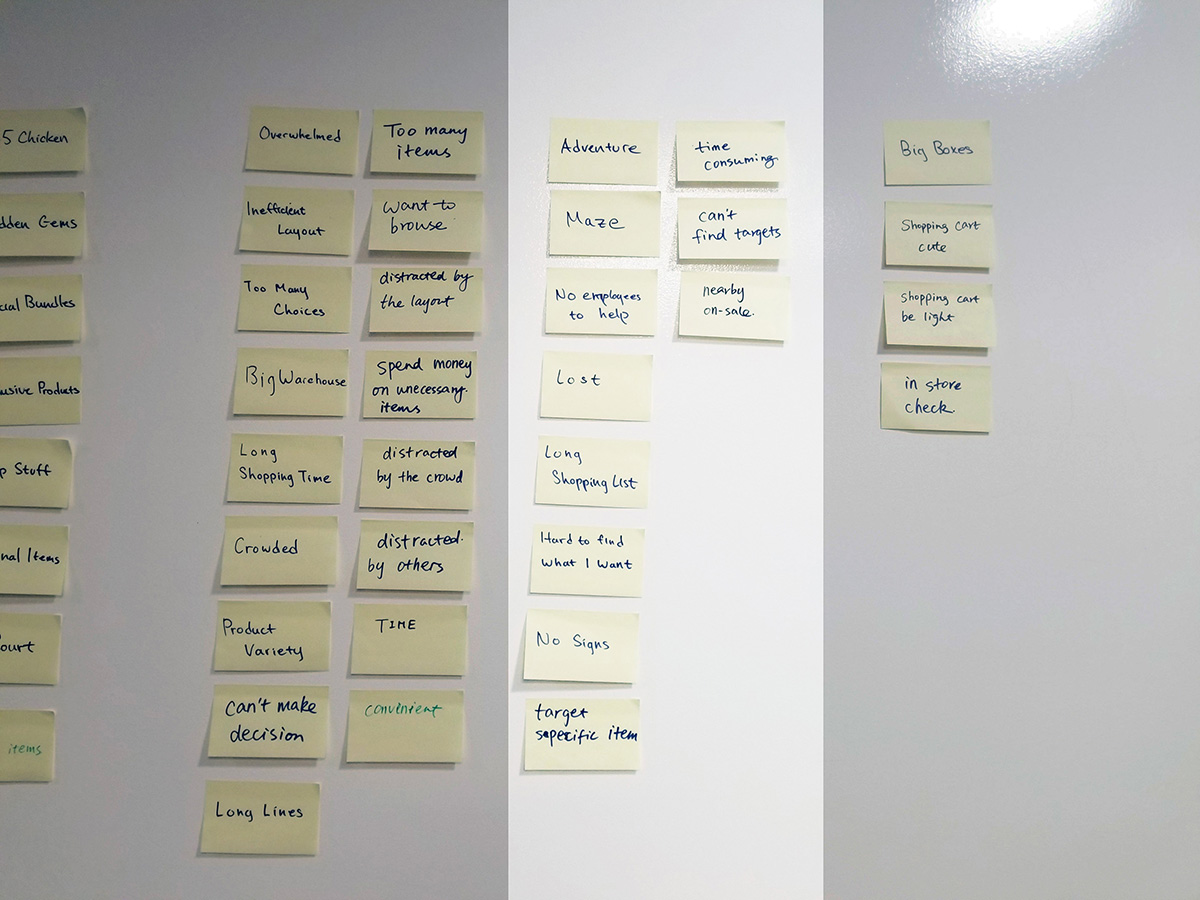 5 Chicken
dden Gems
cial Bundles
usive Products
p Stuff
nal Items
ourt
items
Overwhelmed
Inefficient
Layout
Too Many
Choices
Big Warehouse
Long
Shopping Time
Crowded
Product
Variety
can't make
decision
Long Lines
Too many
items
want to
browse
distracted by
the layout
spend money
on unecessary
items
distracted
by the crowd
distracted
by others
TIME
convenient
Adventure
Maze
No employees
to help
Lost
Long
Shopping List
Hard to find
what I want
No Signs
target
sepecific item
time
consuming
can't
find targets
nearby
on-sale.
Big Boxes
Shopping cart
cute
Shopping cart
be light
in store
check.